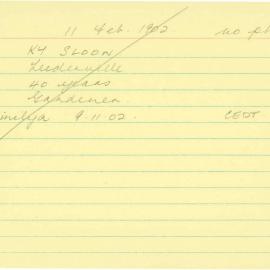 11 Feb. 1902 no ph
KY SLOON
Leederville
40 years
Gardener
9.11.02. CEDT